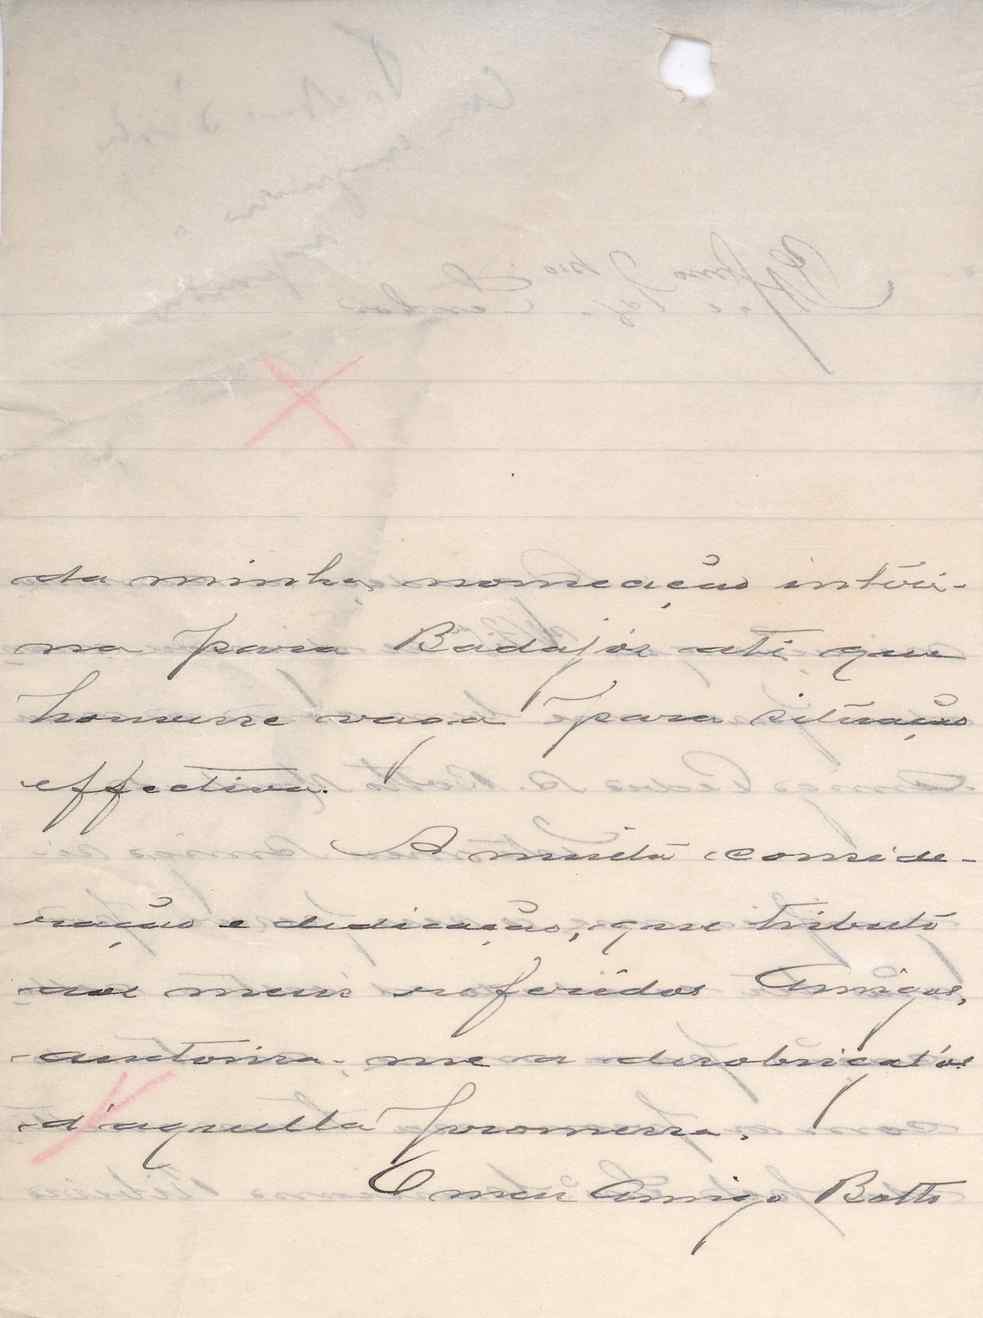 da minha nomeação intéri-
na para Badajós até que
houvesse vaga para situação
effectiva.
A muita conside-
ração e dedicação, que tributo
aos meus referidos Amigos,
auctorisa-me a desobrigal'os
d'aquella promessa.
O meu Amigo Botto